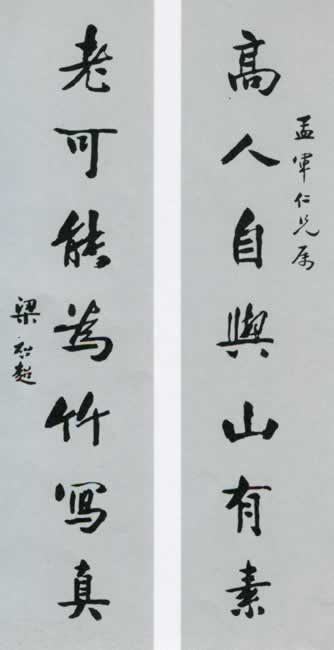 孟軍仁兄属
高人自與山有素
老可能為竹寫真
梁啟超